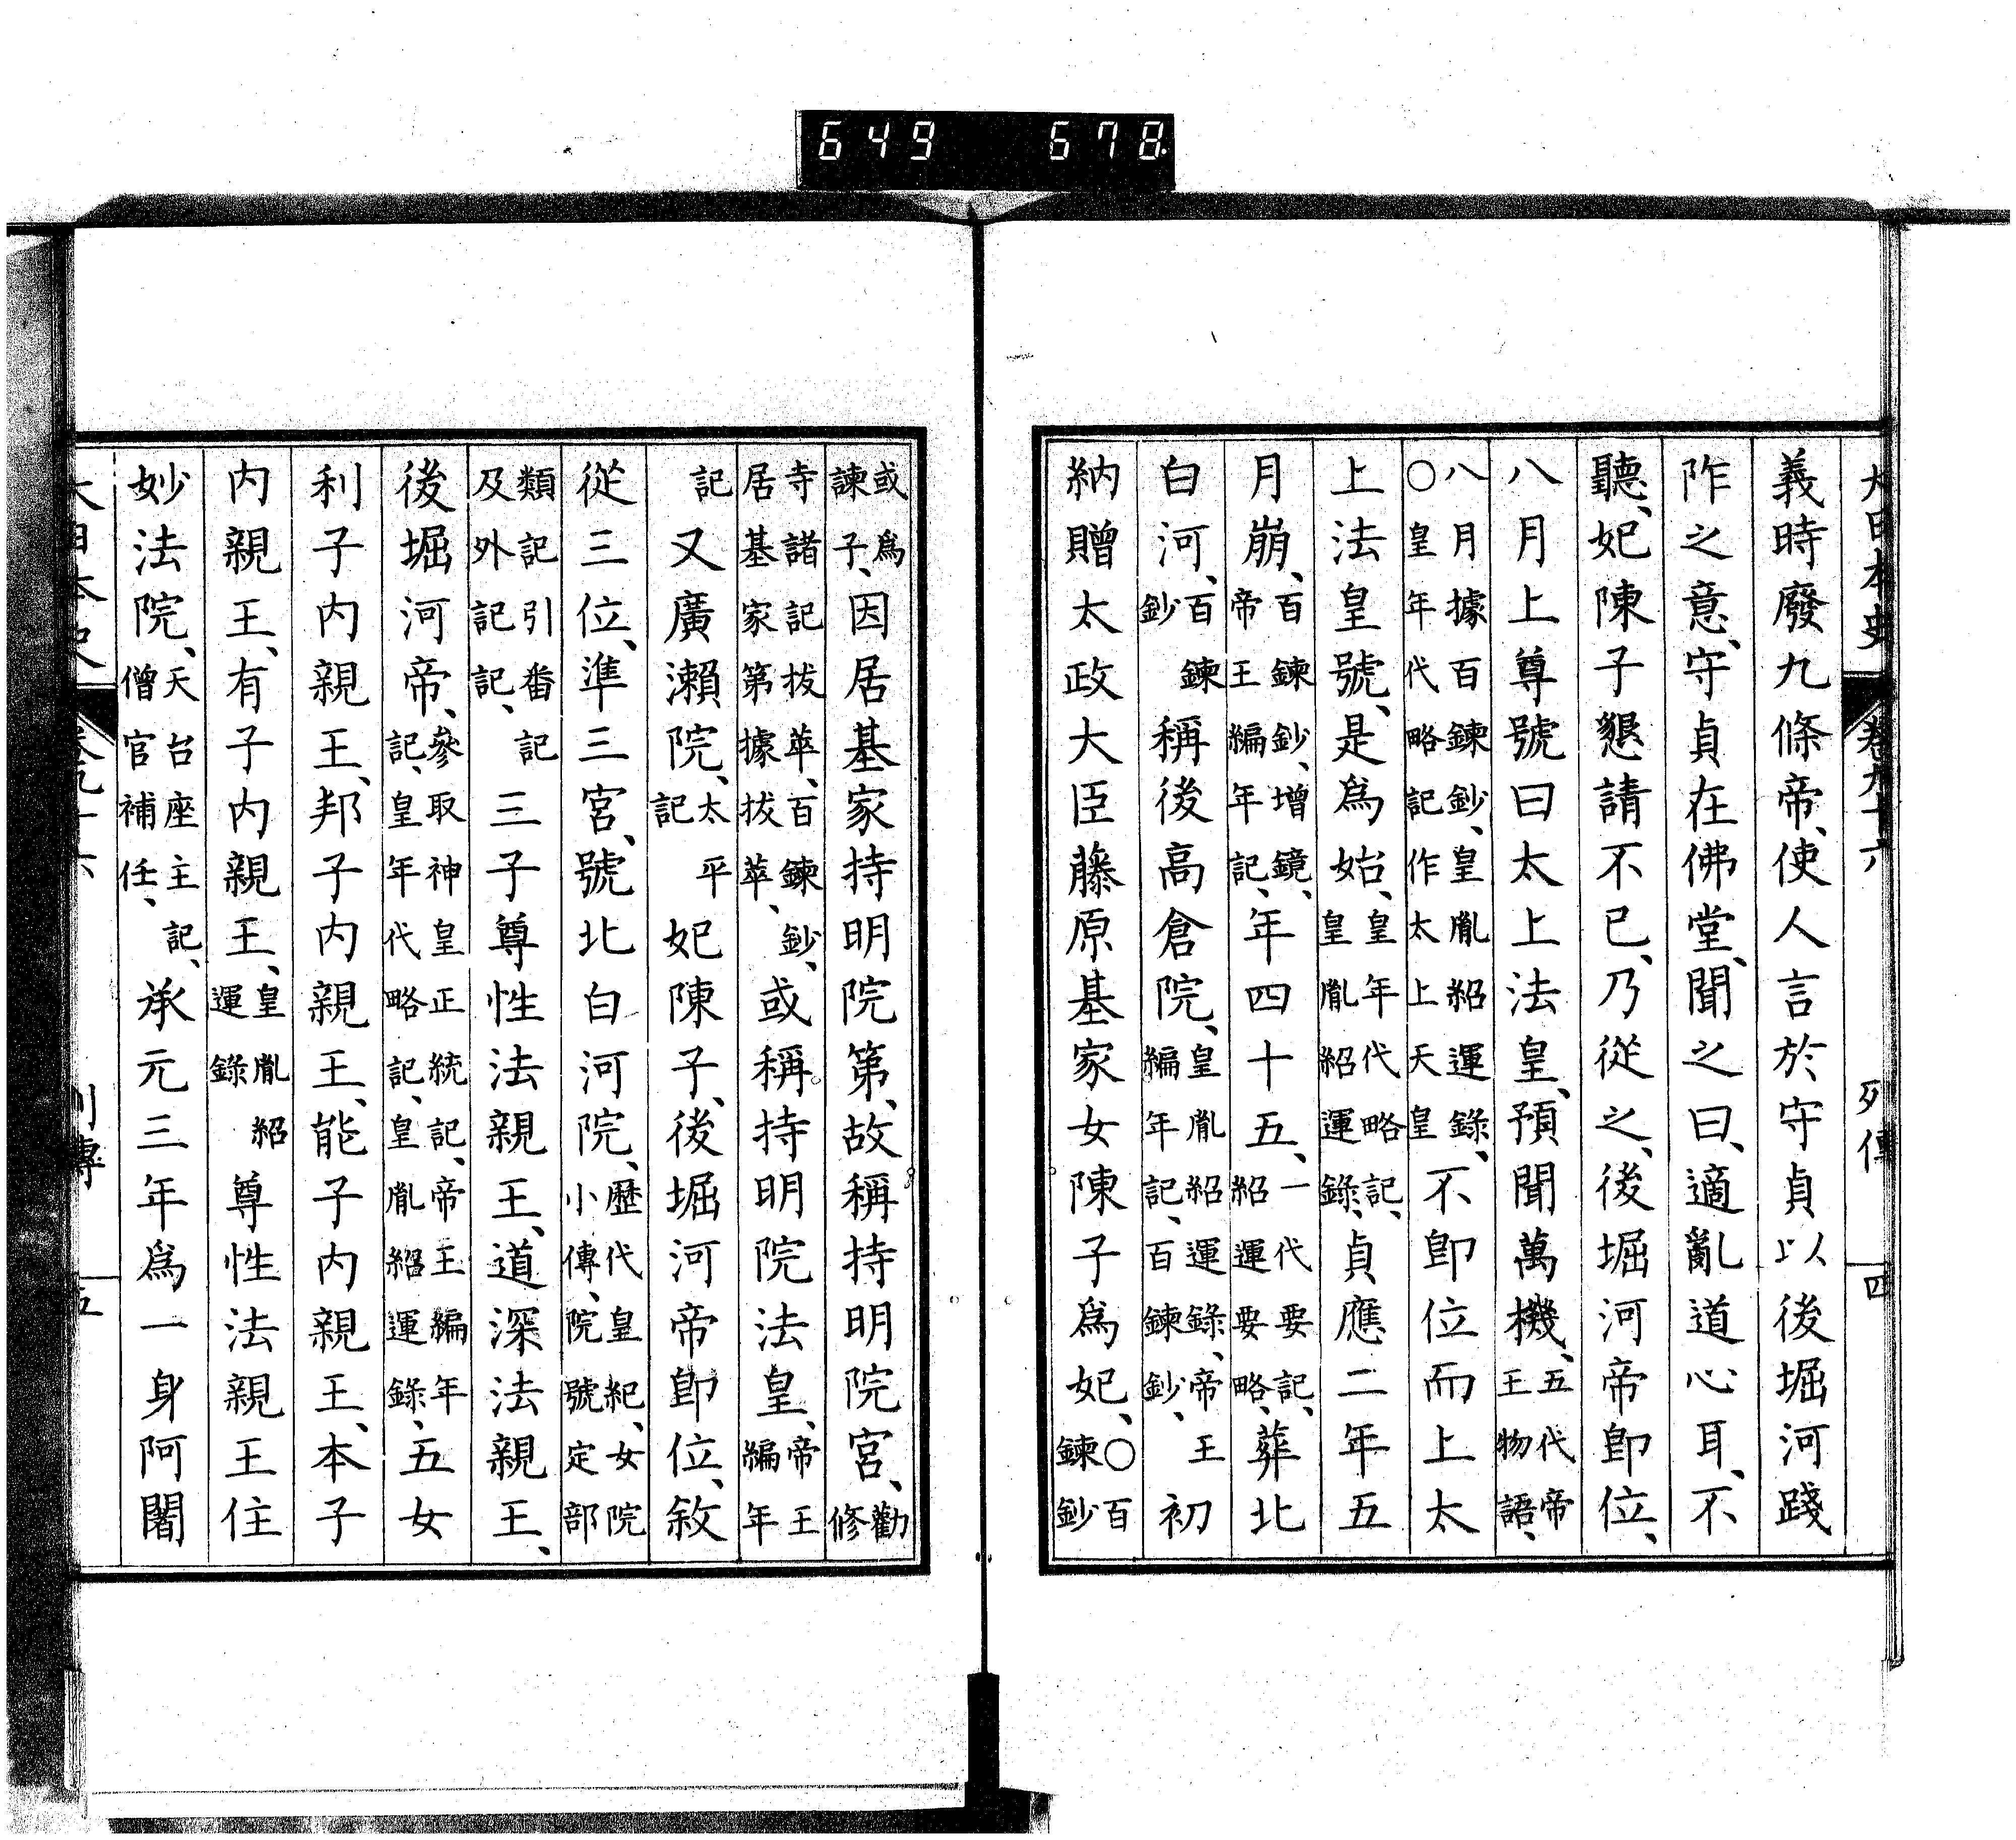 649 678
大日本史 卷九十六 列傳 四
義時廢九條帝、使人言於守貞以後堀河踐
阼之意、守貞在佛堂、聞之曰、適亂道心耳、不
聽、妃陳子懇請不已、乃從之、後堀河帝卽位、
八月上尊號曰太上法皇、預聞萬機、五代帝王物語、
八月據百鍊鈔、皇胤紹運錄、○皇年代略記作太上天皇不卽位而上太
上法皇號、是爲始、皇年代略記、皇胤紹運錄、貞應二年五
月崩、百鍊鈔、增鏡、帝王編年記、年四十五、一代要記、紹運要略、葬北
白河、百鍊鈔稱後高倉院、皇胤紹運錄、帝王編年記、百鍊鈔、初
納贈太政大臣藤原基家女陳子爲妃、○百鍊鈔
或爲諫子、因居基家持明院第、故稱持明院宮、勸修
寺諸記拔萃、百鍊鈔、居基家第據拔萃、或稱持明院法皇、帝王編年
記又廣瀨院、太平記妃陳子、後堀河帝卽位、敘
從三位、準三宮、號北白河院、歷代皇紀、女院小傳、院號定部
類記引番記及外記記、三子尊性法親王、道深法親王、
後堀河帝、參取神皇正統記、皇年代略記、帝王編年記、皇胤紹運錄、五女
利子内親王、邦子内親王、能子内親王、本子
内親王、有子内親王、皇胤紹運錄尊性法親王住
妙法院、天台座主記、僧官補任、承元三年爲一身阿闍
大日本史 卷九十六 列傳 五